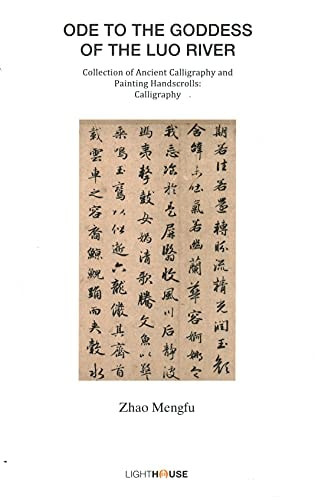 ODE TO THE GODDESS
OF THE LUO RIVER
Collection of Ancient Calligraphy and
Painting Handscrolls:
Calligraphy
期若往若還轉眄流精光潤玉顏
含辭未吐氣若幽蘭華容婀娜令
我忘飡於是屏翳收風川后靜波
馮夷擊鼓女媧清歌騰文魚以警
乘鳴玉鸞以偕逝六龍儼其齊首
載雲車之容裔鯨鯢踊而夾轂水
Zhao Mengfu
LIGHTHOUSE